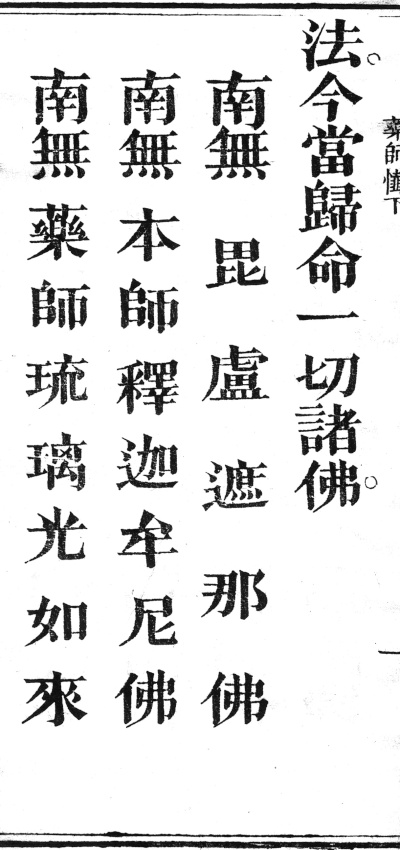 藥師懺下
法。今當歸命一切諸佛。
南無毘盧遮那佛
南無本師釋迦牟尼佛
南無藥師琉璃光如來